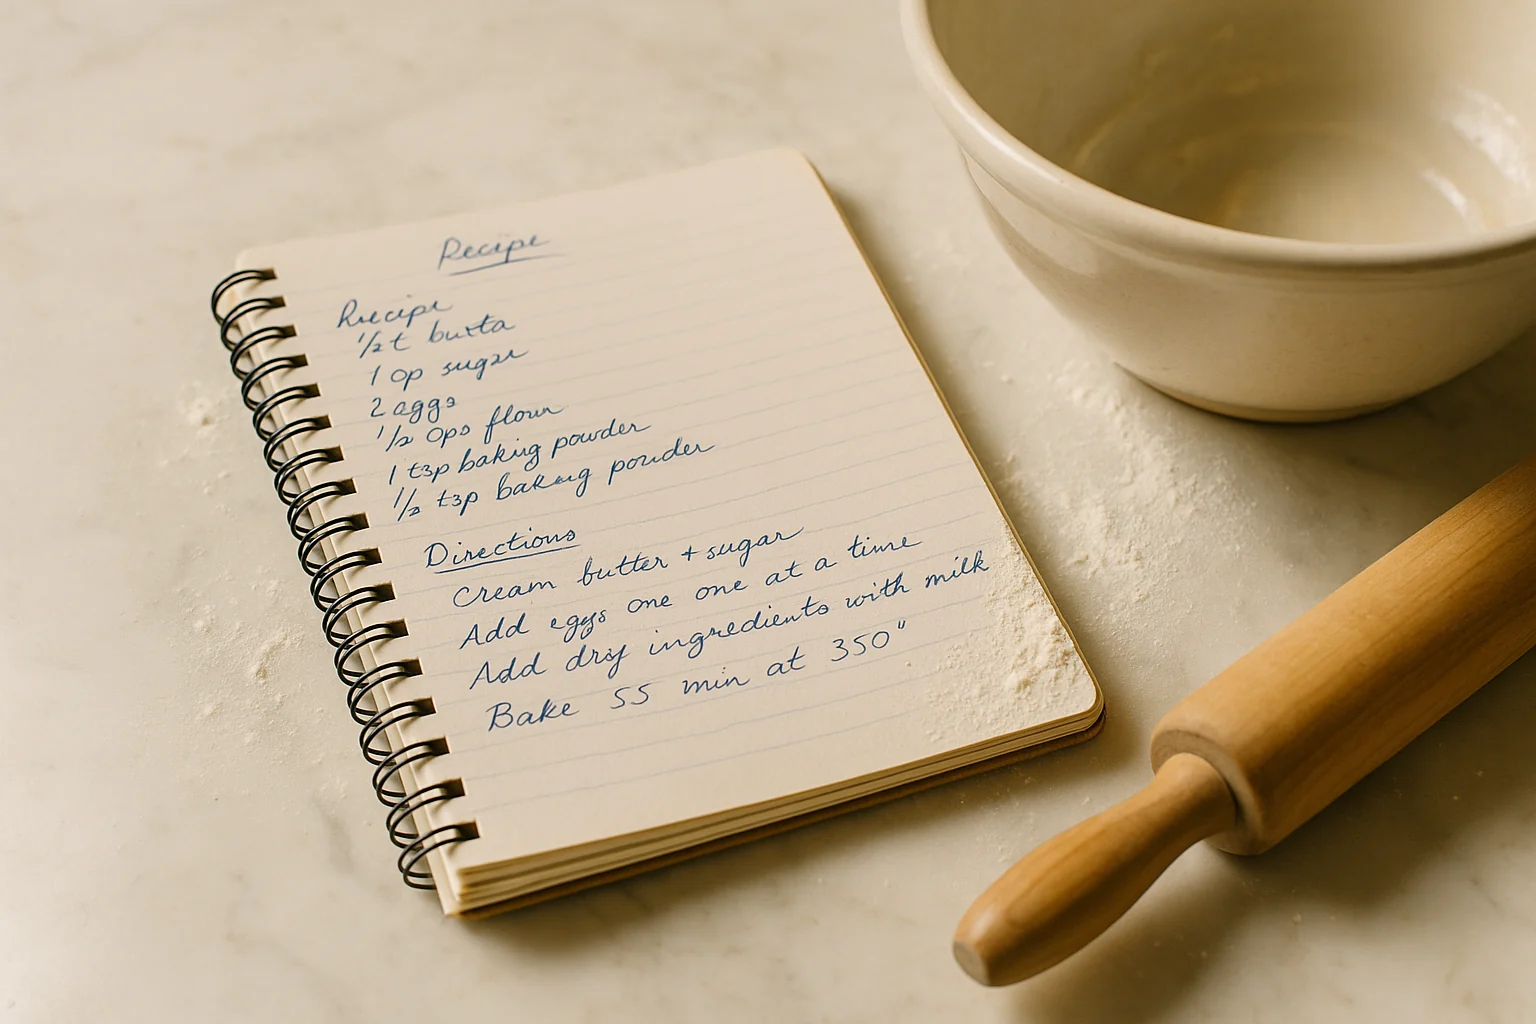 Recipe
Recipe
1/2 t butta
1 op sugar
2 aggs
1/2 ops flour
1 tsp baking powder
1/2 tsp baking powder
Directions
Cream butter + sugar
Add eggs one one at a time
Add dry ingredients with milk
Bake 55 min at 350"